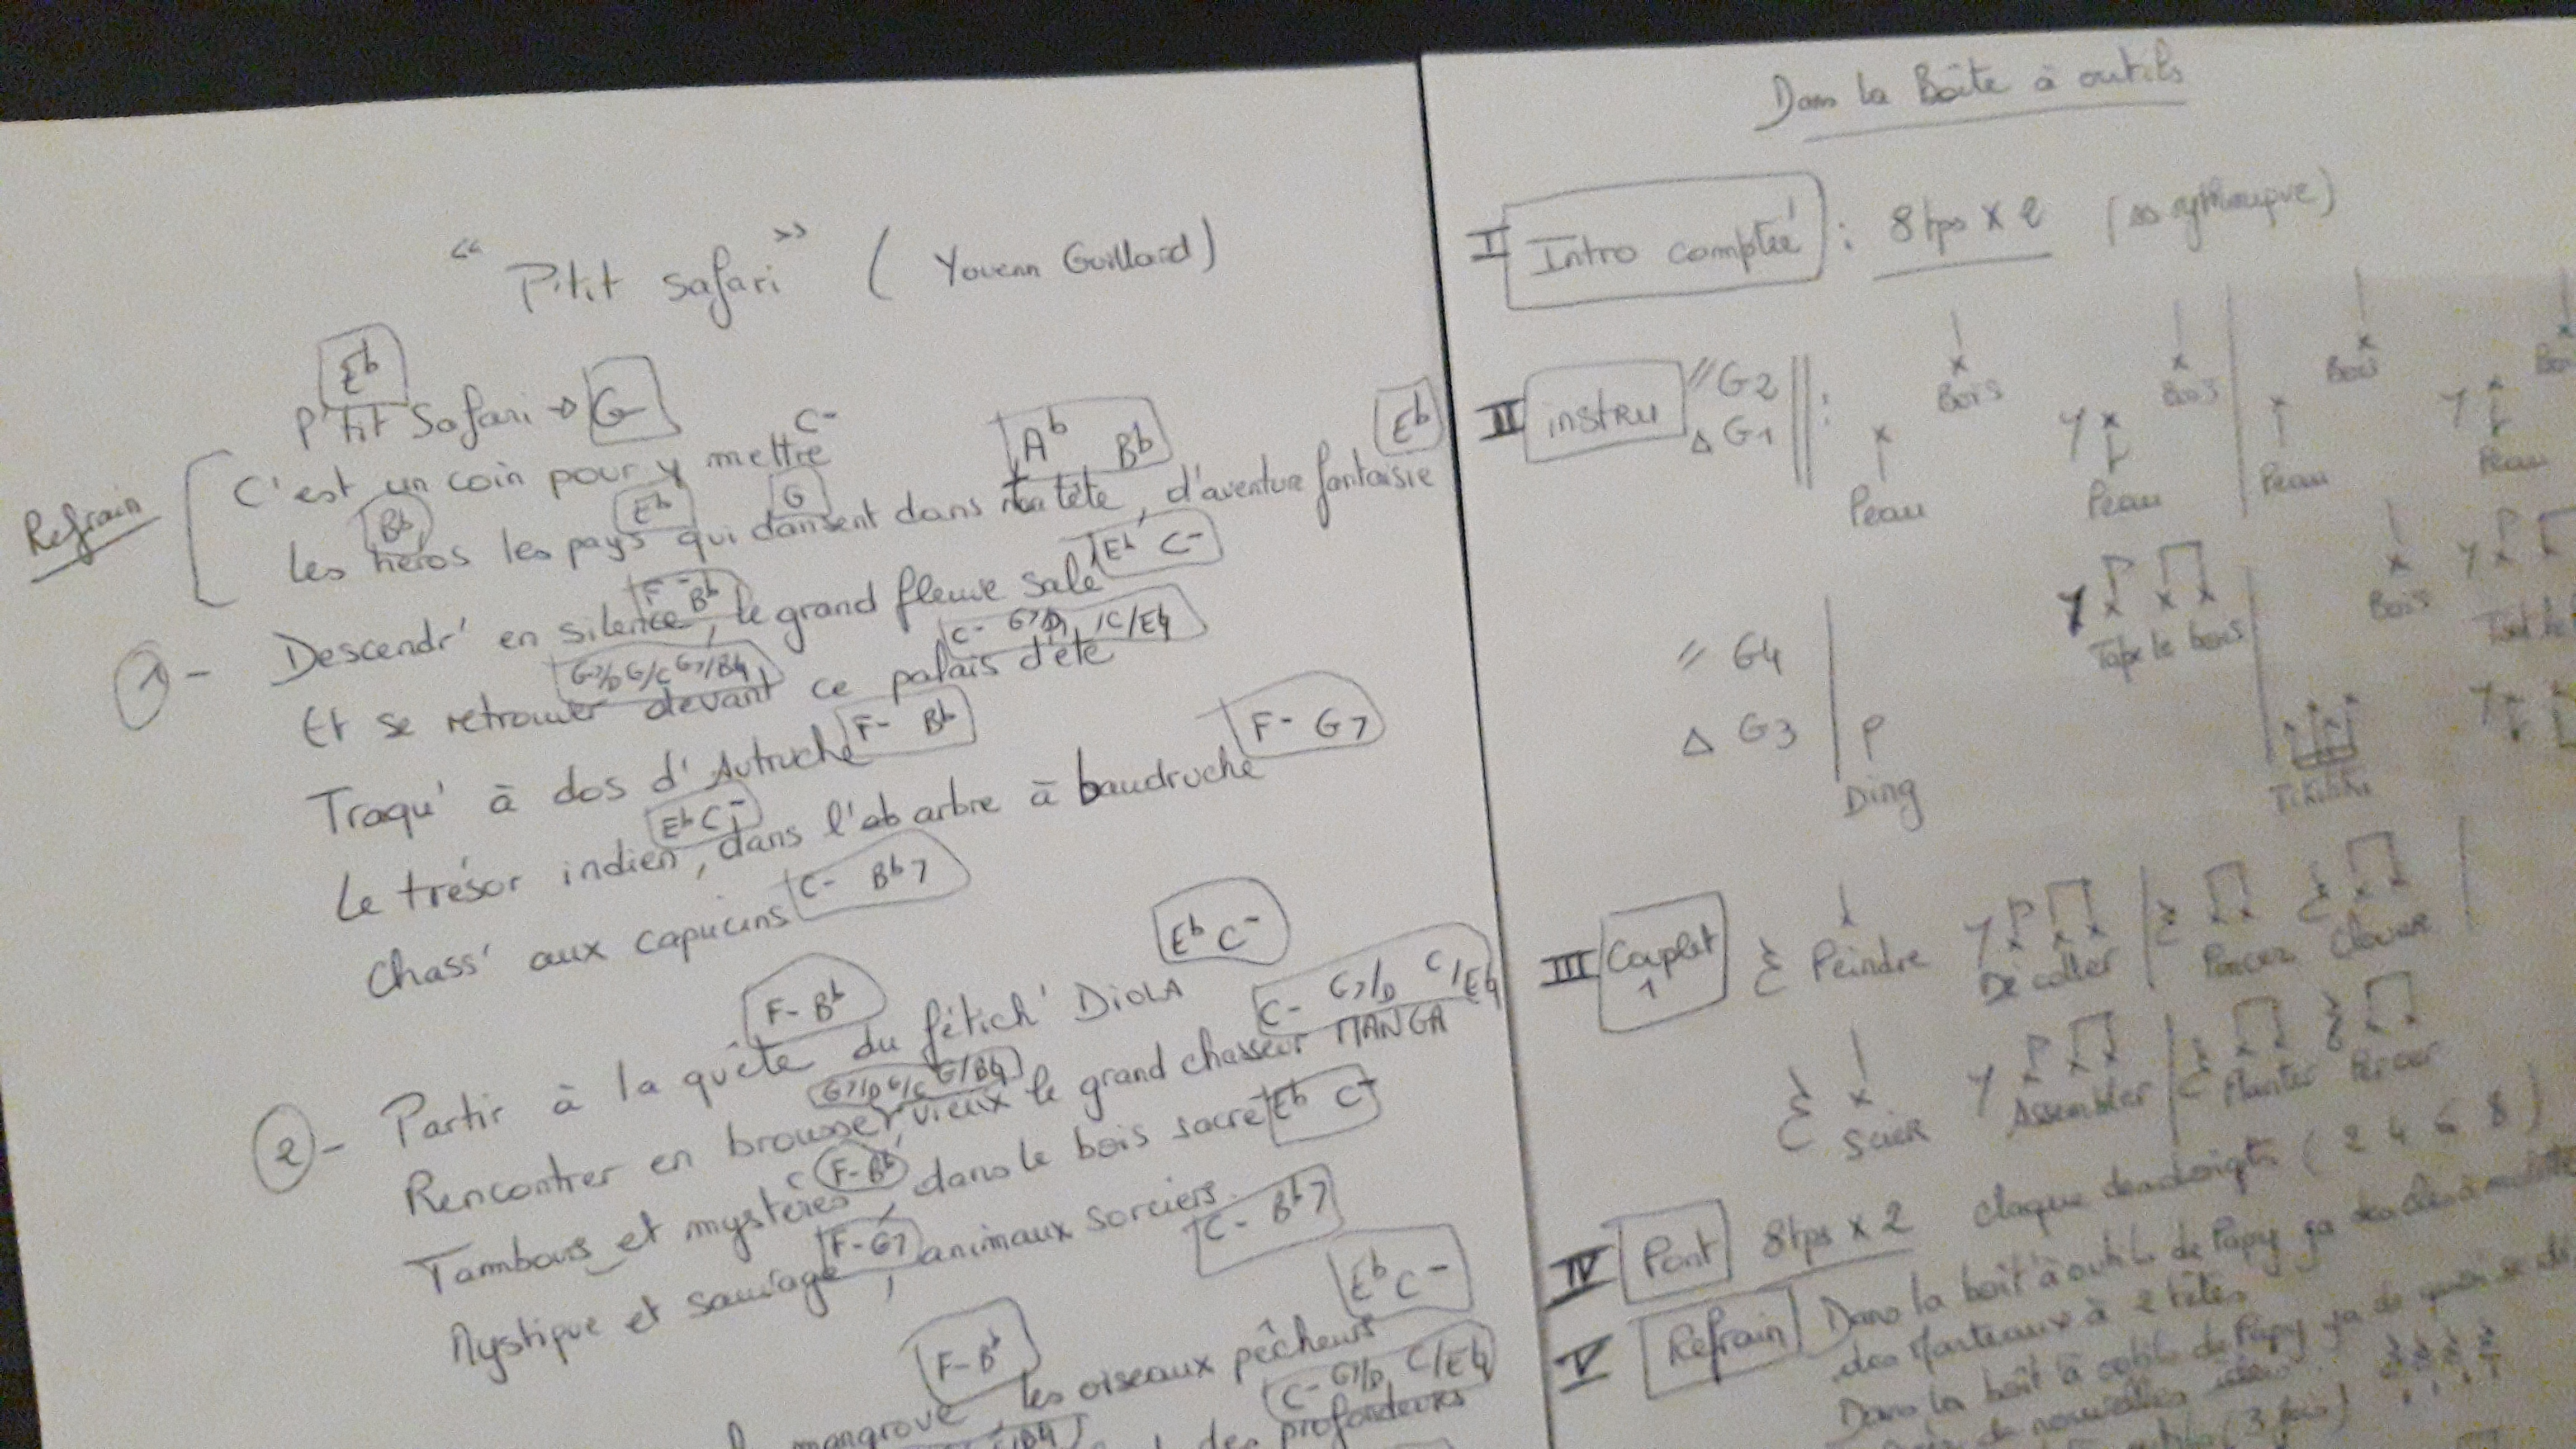 " P'tit Safari " ( Youenn Guillard )
Eb
P'tit Safari → G
C-
Ab Bb
Eb
Refrain
C'est un coin pour y mettre
Bb Eb G
Les héros les pays qui dansent dans ta tête, d'aventure fantaisie
F- Bb
Eb C-
1 - Descendr' en silence, le grand fleuve salé
G7/D G/C G7/B♮
C- G7/D C/E♮
Et se retrouver devant ce palais d'été
F- Bb
Traqu' à dos d'Autruche
Eb C-
F- G7
Le trésor indien, dans l'ab arbre à baudruche
C- Bb7
Chass' aux capucins
F- Bb
Eb C-
2 - Partir à la quête du fétich' DIOLA
G7/D G/C G/B♮
C- G7/D C/E♮
Rencontrer en brousse, vieux le grand chasseur MANGA
C F-Bb
Eb C-
Tambours et mystères, dans le bois sacré
F-G7
C- Bb7
Mystique et sauvage, animaux sorciers.
F-Bb
Eb C-
mangrove, les oiseaux pêcheurs
C- G7/D C/E♮
des profondeurs
Dans la Boîte à outils
I Intro comptée : 8 tps x 2 (ss rythmique)
II instru
" G2 Bois Bois Bois
Δ G1 Peau Peau Peau Peau
" G4 Tape le bois Bois
Δ G3 Ding Tikitiki
III Couplet 1 Peindre Décoller Poncer Clouer
Scier Assembler Planter Percer
IV Pont 8 tps x 2 claque des doigts (2 4 6 8)
V Refrain Dans la boît' à outils de Papy ya des clés à molette
des Marteaux à 2 têtes
Dans la boît' à outils de Papy ya de quoi se
de nouvelles idées
outils (3 fois)